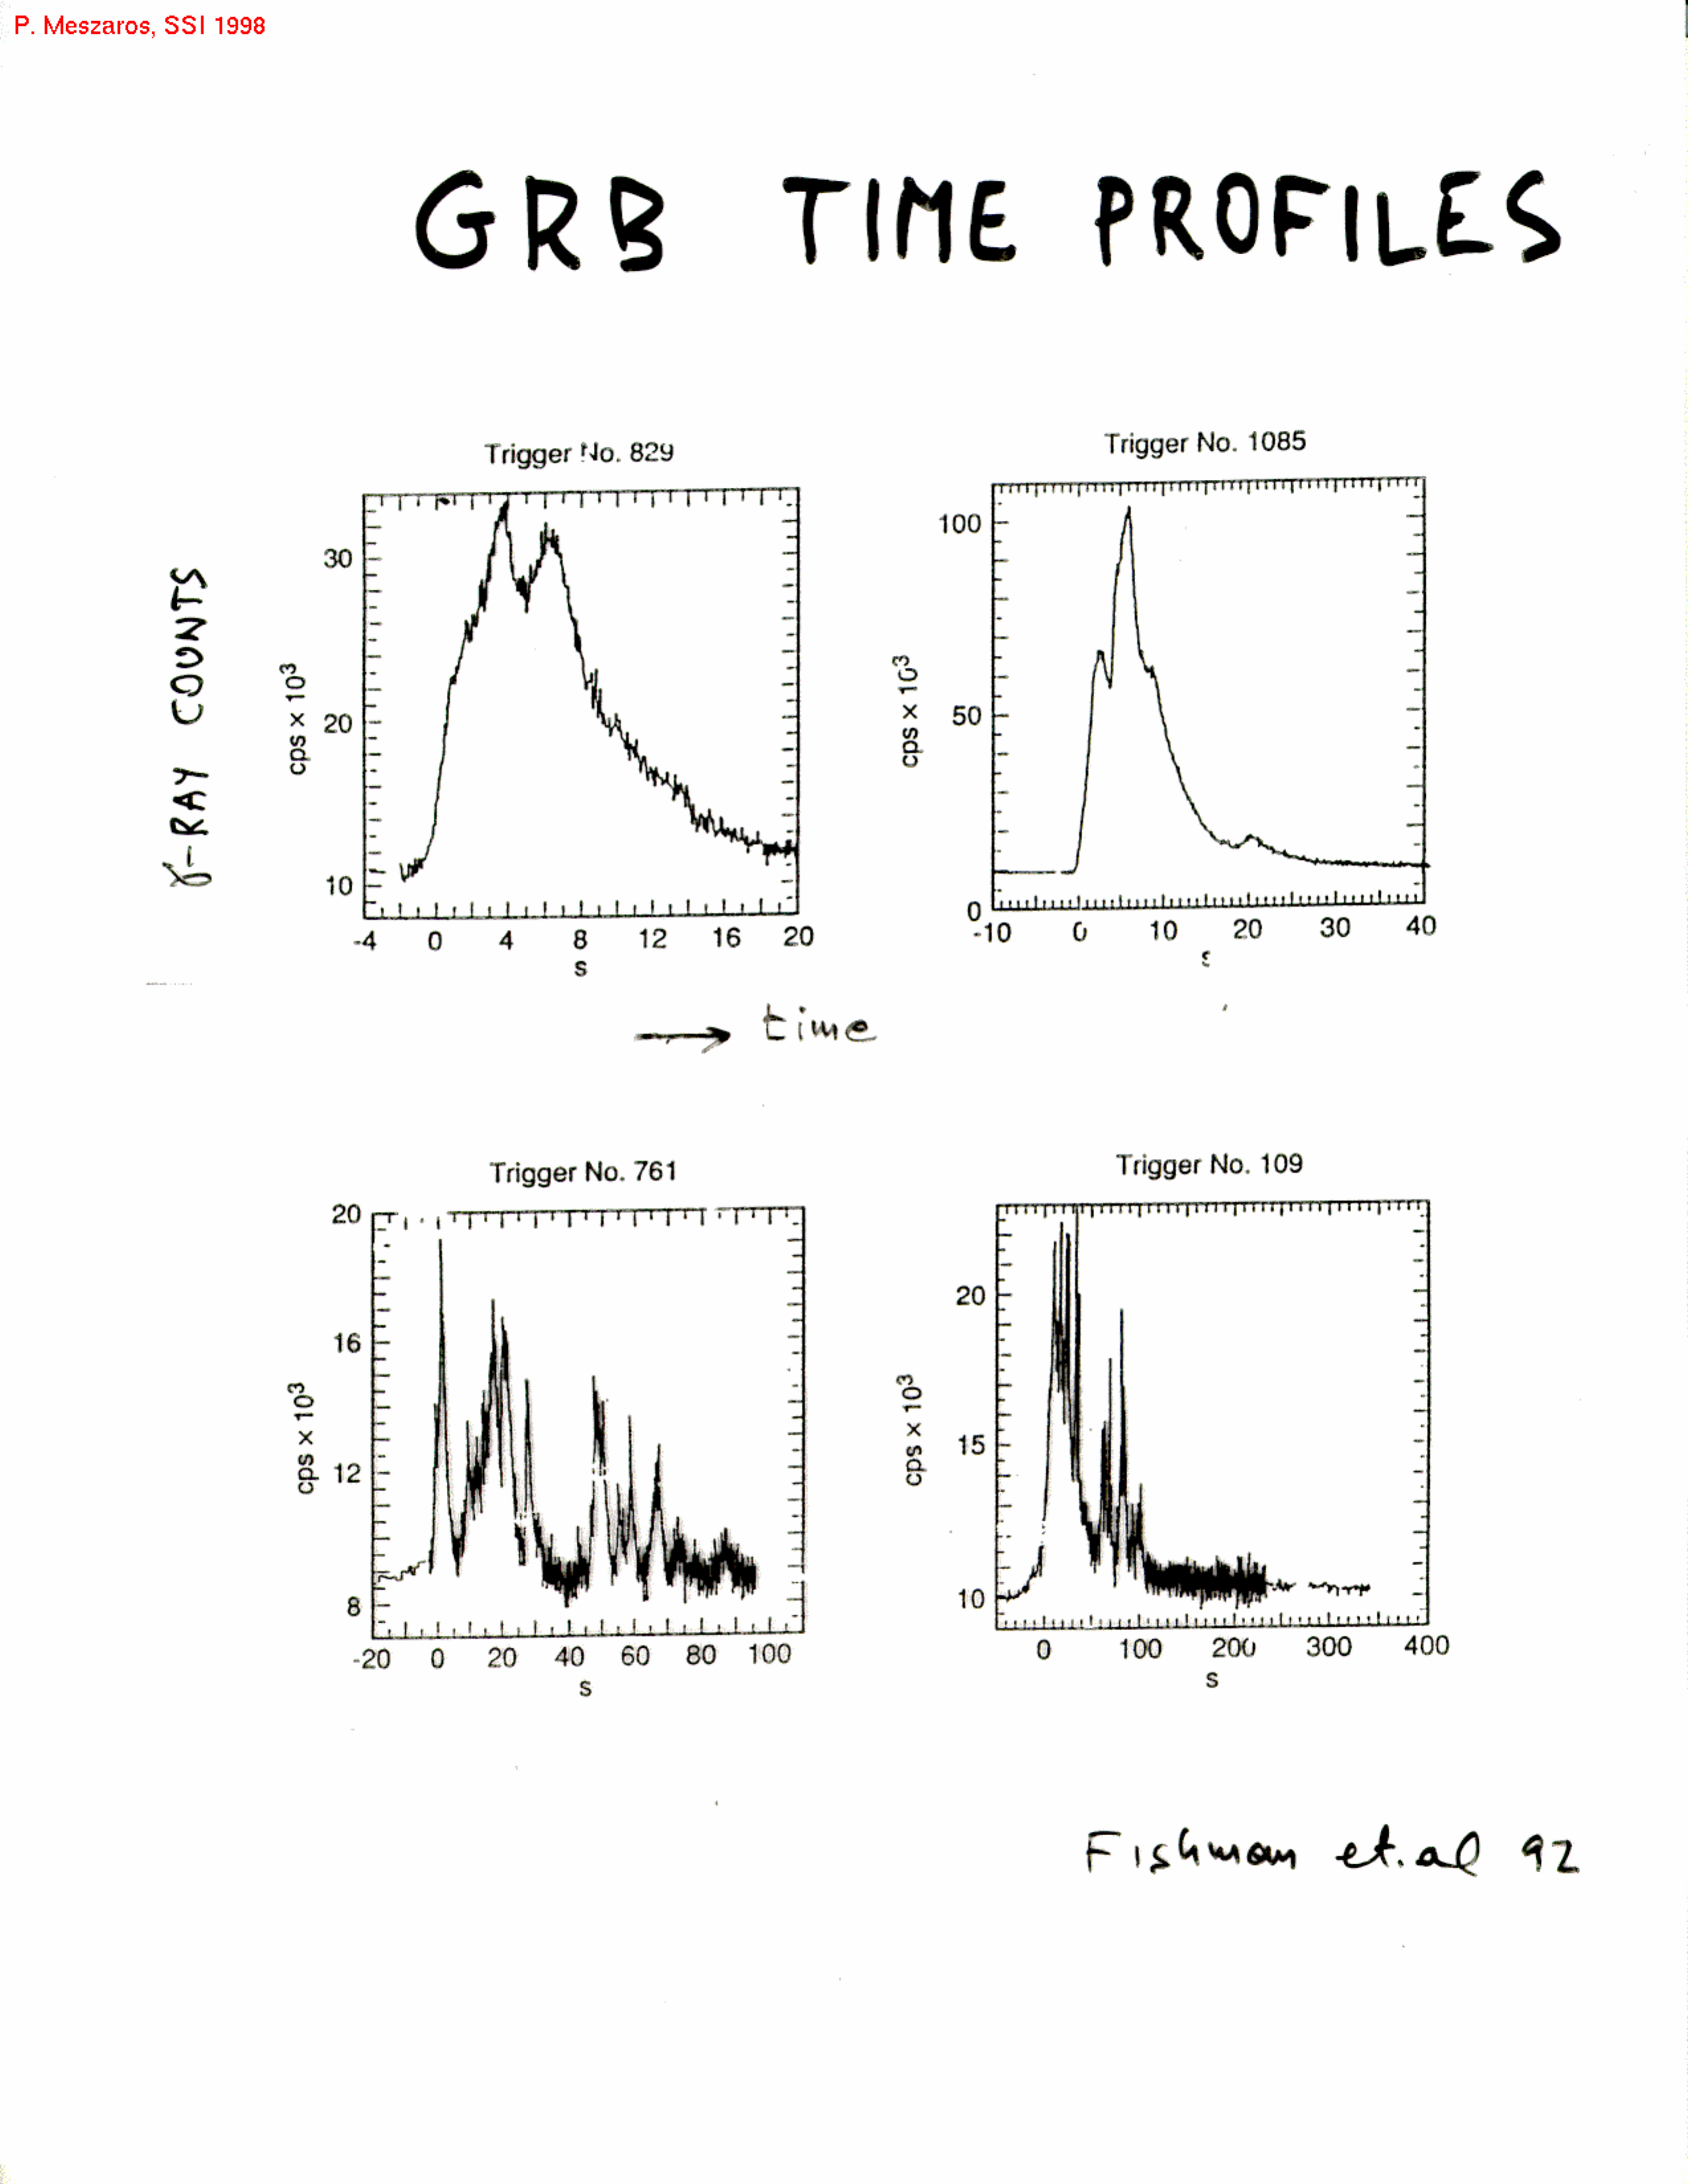 P. Meszaros, SSI 1998
GRB TIME PROFILES
γ-RAY COUNTS
Trigger No. 829
cps x 10³
30
20
10
-4 0 4 8 12 16 20
s
Trigger No. 1085
cps x 10³
100
50
0
-10 0 10 20 30 40
s
→ time
Trigger No. 761
cps x 10³
20
16
12
8
-20 0 20 40 60 80 100
s
Trigger No. 109
cps x 10³
20
15
10
0 100 200 300 400
s
Fishman et.al 92